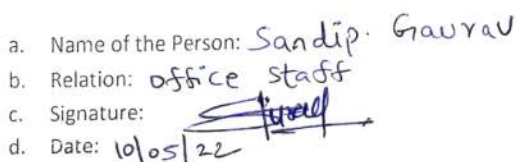 a. Name of the Person: Sandip. Gaurav
b. Relation: office staff
c. Signature:
d. Date: 10/05/22